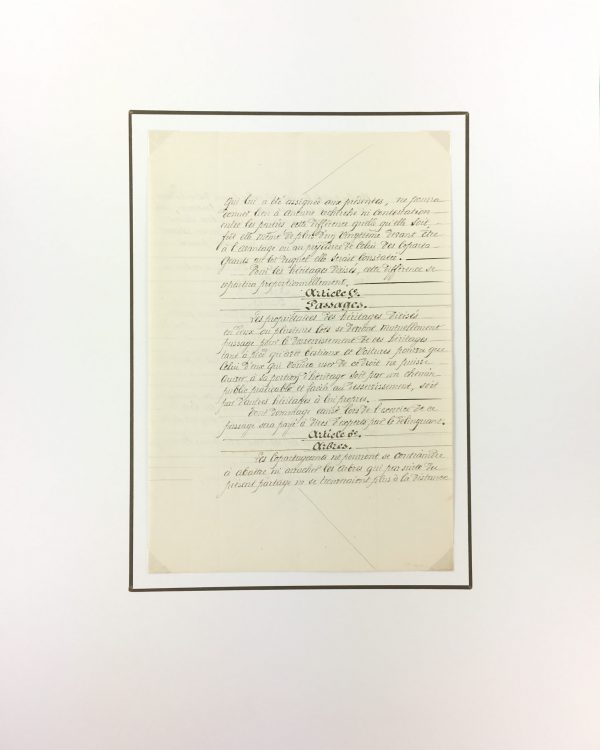 qui lui a été assignée aux présentes, ne pourra
donner lieu à aucune recherche ni contestation
entre les parties cette différence quelle qu'elle soit,
fût elle même de plus d'un vingtième devant être
à l'avantage ou au préjudice de celui des coparta
geants au lot duquel elle serait constatée.
Pour les héritages divisés, cette différence se
répartira proportionnellement.
Article 5e.
Passages.
Les propriétaires des héritages divisés
en deux ou plusieurs lots se devront mutuellement
passage pour le desservissement de ces héritages
tant à pied qu'avec bestiaux et voitures pourvu que
celui d'eux qui voudra user de ce droit ne puisse
arriver à sa portion d'héritage soit par un chemin
public praticable et facile au desservissement, soit
par d'autres héritages à lui propres.
Tout dommage causé lors de l'exercice de ce
passage sera payé à dires d'experts par le délinquant.
Article 6e.
Arbres.
Les copartageants ne pourront se contraindre
à abattre ni arracher les arbres qui par suite du
présent partage ne se trouveraient plus à la distance